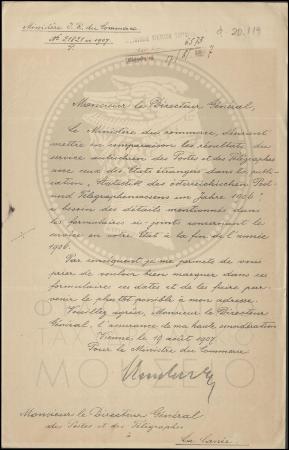 Ministère I. R. du Commerce
No 21821 ex 1907.
P.
4573
17/8/7
Monsieur le Directeur Général,
Le Ministère du commerce, désirant
mettre en comparaison les résultats du
service autrichien des Postes et des Télégraphes
avec ceux des États étrangers dans la publi-
cation "Statistik des österreichischen Post-
und Telegraphenwesens im Jahre 1906"
a besoin des détails mentionnés dans
les formulaires ci-joints concernant le
service en votre État à la fin de l'année
1906.
Par conséquent je me permets de vous
prier de vouloir bien marquer dans ces
formulaires ces dates et de les faire par-
venir le plus tôt possible à mon adresse.
Veuillez agréer, Monsieur le Directeur
Général, l'assurance de ma haute considération
Vienne, le 19 août 1907.
Pour le Ministre du Commerce
Monsieur le Directeur Général
des Postes et des Télégraphes
à
La Canée.